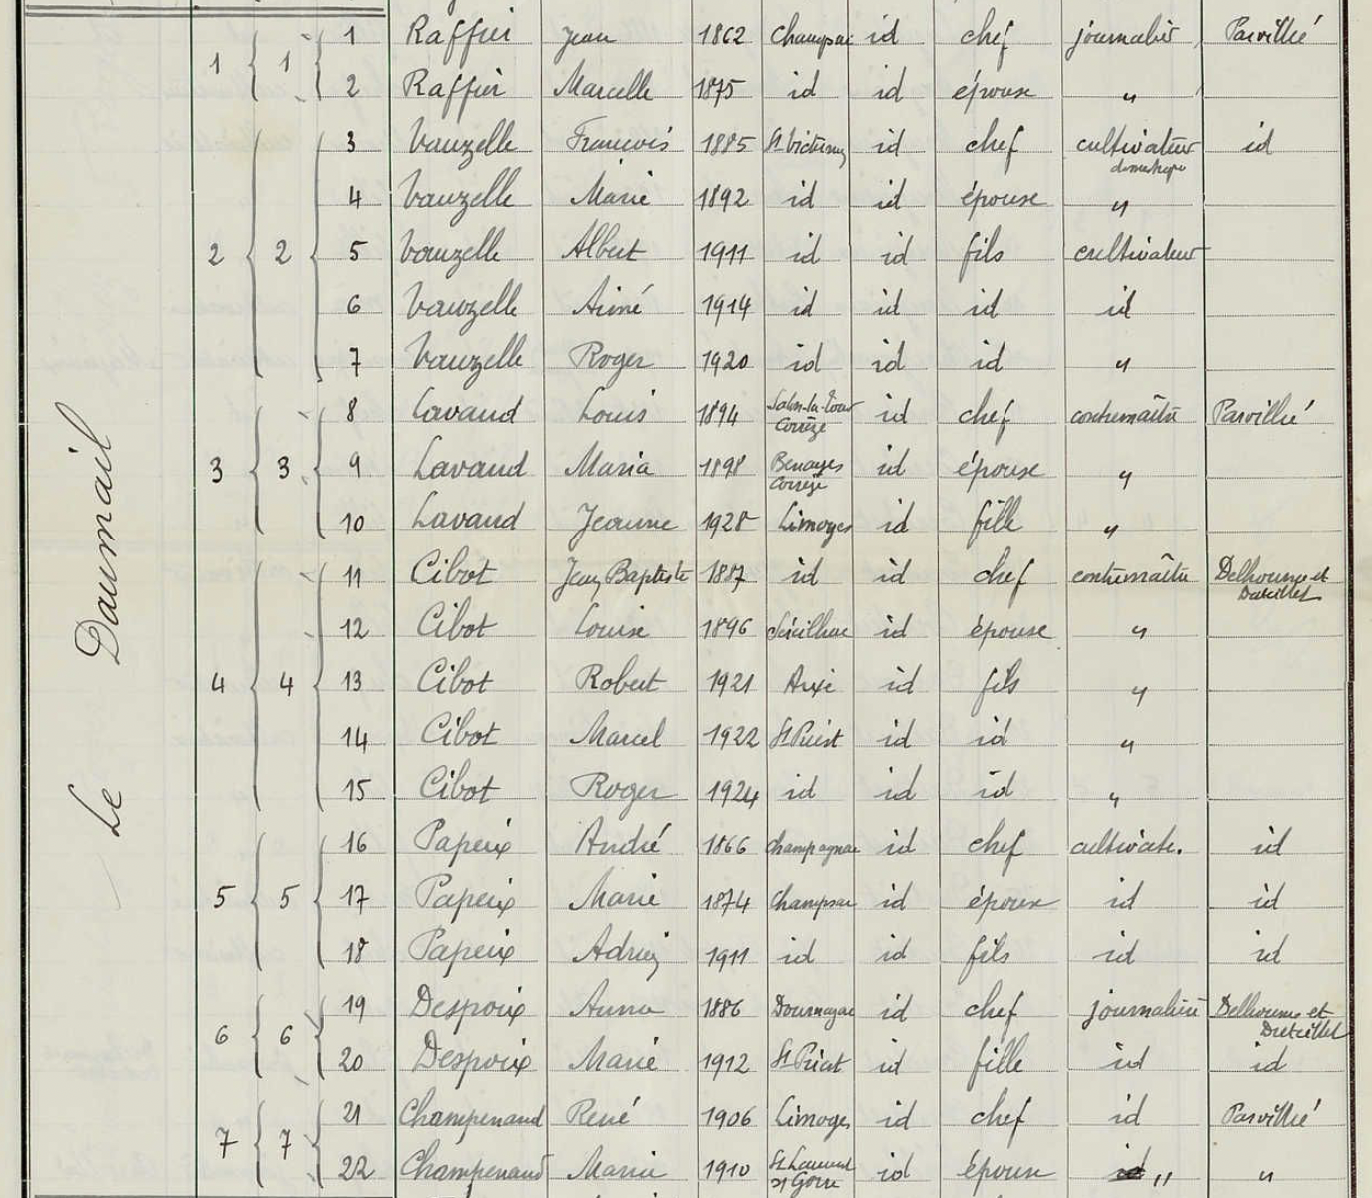 Le Daumail
1 1 1 Raffier Jean 1862 Champsac id chef journalier Parvillié
2 Raffier Marcelle 1875 id id épouse "
3 Vauzelle Francois 1885 St Victurnien id chef cultivateur id
domestique
4 Vauzelle Marie 1892 id id épouse "
2 2 5 Vauzelle Albert 1911 id id fils cultivateur
6 Vauzelle Aimé 1914 id id id id
7 Vauzelle Roger 1920 id id id "
8 Lavaud Louis 1894 Salon-la-Tour Corrèze id chef contremaître Parvillié
3 3 9 Lavaud Maria 1898 Benayes Corrèze id épouse "
10 Lavaud Jeanne 1928 Limoges id fille "
11 Cibot Jean Baptiste 1887 id id chef contremaître Delhoume et
12 Cibot Louise 1896 id épouse "
4 4 13 Cibot Robert 1921 Aixe id fils "
14 Cibot Marcel 1922 St Priest id id "
15 Cibot Roger 1924 id id id "
16 Papeix André 1866 Champagnac id chef cultivate. id
5 5 17 Papeix Marie 1874 Champsac id épouse id id
18 Papeix Adrien 1911 id id fils id id
19 Despoix Anna 1886 Dournazac id chef journalière Delhoume et
6 6 20 Despoix Marie 1912 St Priest id fille id id
21 Champenaud René 1906 Limoges id chef id Parvillié
7 7 22 Champenaud Marie 1910 St Laurent s/ Gorre id épouse " "